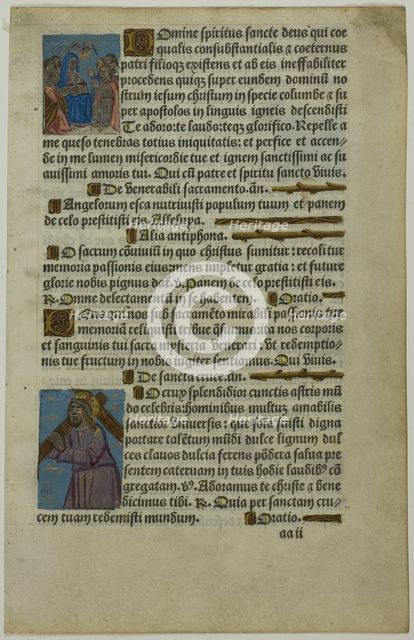 Domine spiritus sancte deus qui coe
qualis consubstantialis & coeternus
patri filioq̃ existens et ab eis ineffabiliter
procedens quiq̃ super eundem dominũ no
strum iesum christum in specie columbe & su
per apostolos in linguis igneis descendisti
Te adoro: te laudo: teq̃ glorifico. Repelle a
me queso tenebras totius iniquitatis: et perfice et accen
de in me lumen misericordie tue et ignem sanctissimi ac su
auissimi amoris tui. Qui cũ patre et spiritu sancto Viuis.
De Venerabili sacramento. añ.
Angelorum esca nutriuisti populum tuum et panem
de celo prestitisti eis Alleluya.
Alia antiphona.
O sacrum cõuiuiũ in quo christus sumitur: recoli tur
memoria passionis eius: mens impletur gratia: et future
glorie nobis pignus datur. Ꝟ. Panem de celo prestitisti eis.
℞. Omne delectamentũ in se habentem. Oratio.
Deus qui nobis sub sacramẽto mirabili passionis tue
memoriã reliquisti tribue q̃sumus ita nos corporis
et sanguinis tui sacra mysteria Venerari. Vt redemptio-
nis tue fructum in nobis iugiter sentiamus. Qui Viuis.
De sancta cruce. añ.
O crux splendidior cunctis astris mũ
do celebris: hominibus multum amabilis
sanctior Vniuersis: que sola fuisti digna
portare talẽtum mũdi dulce lignum dul
ces clauos dulcia ferens põdera salua pre
sentem cateruam in tuis hodie laudibꝰ cõ
gregatam. Ꝟ. Adoramus te christe & bene
dicimus tibi. ℞. Quia per sanctam cru
cem tuam redemisti mundum. Oratio.
aa ii
Heritage
Heritage
Heritage